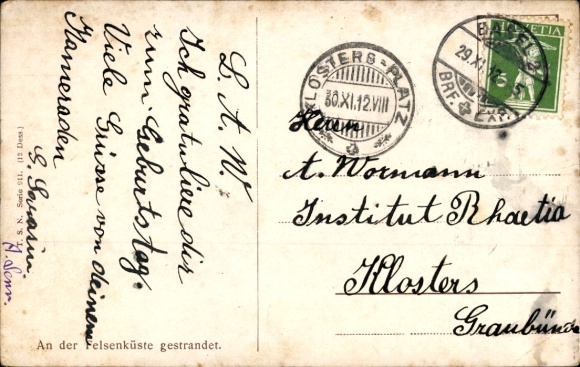 L. A. W.
Ich gratuliere dir
zum Geburtstag.
Viele Grüsse von deinem
Kameraden
G.
T. S. N. Serie 911. (12 Dess.)
An der Felsenküste gestrandet.
KLOSTERS-PLATZ
30.XI.12.VIII
BASEL 2
29.XI.12
BRF. EXP.
HELVETIA
5
Herrn
A. Wormann
Institut Rhaetia
Klosters
Graubünden